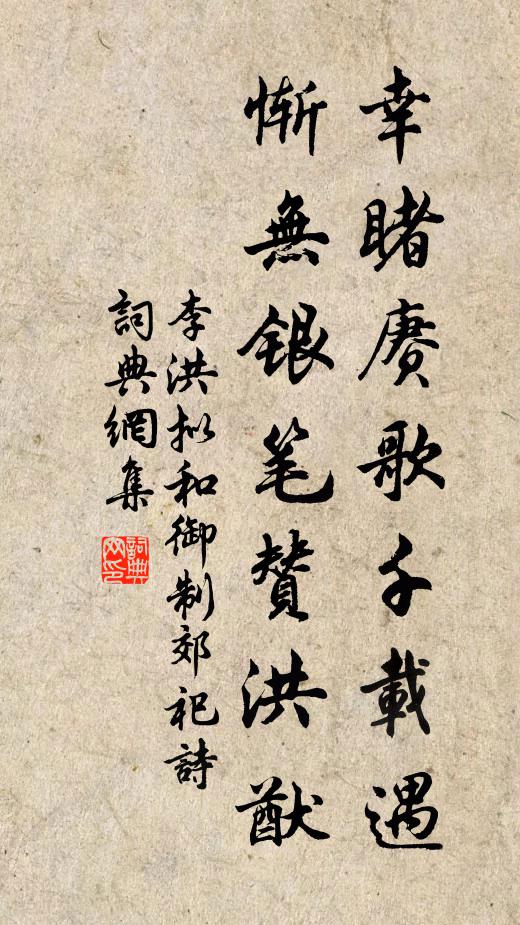 幸睹赓歌千載遇
慚無银笔贊洪猷
李洪拟和御制郊祀詩
詞典網集
詞典网印